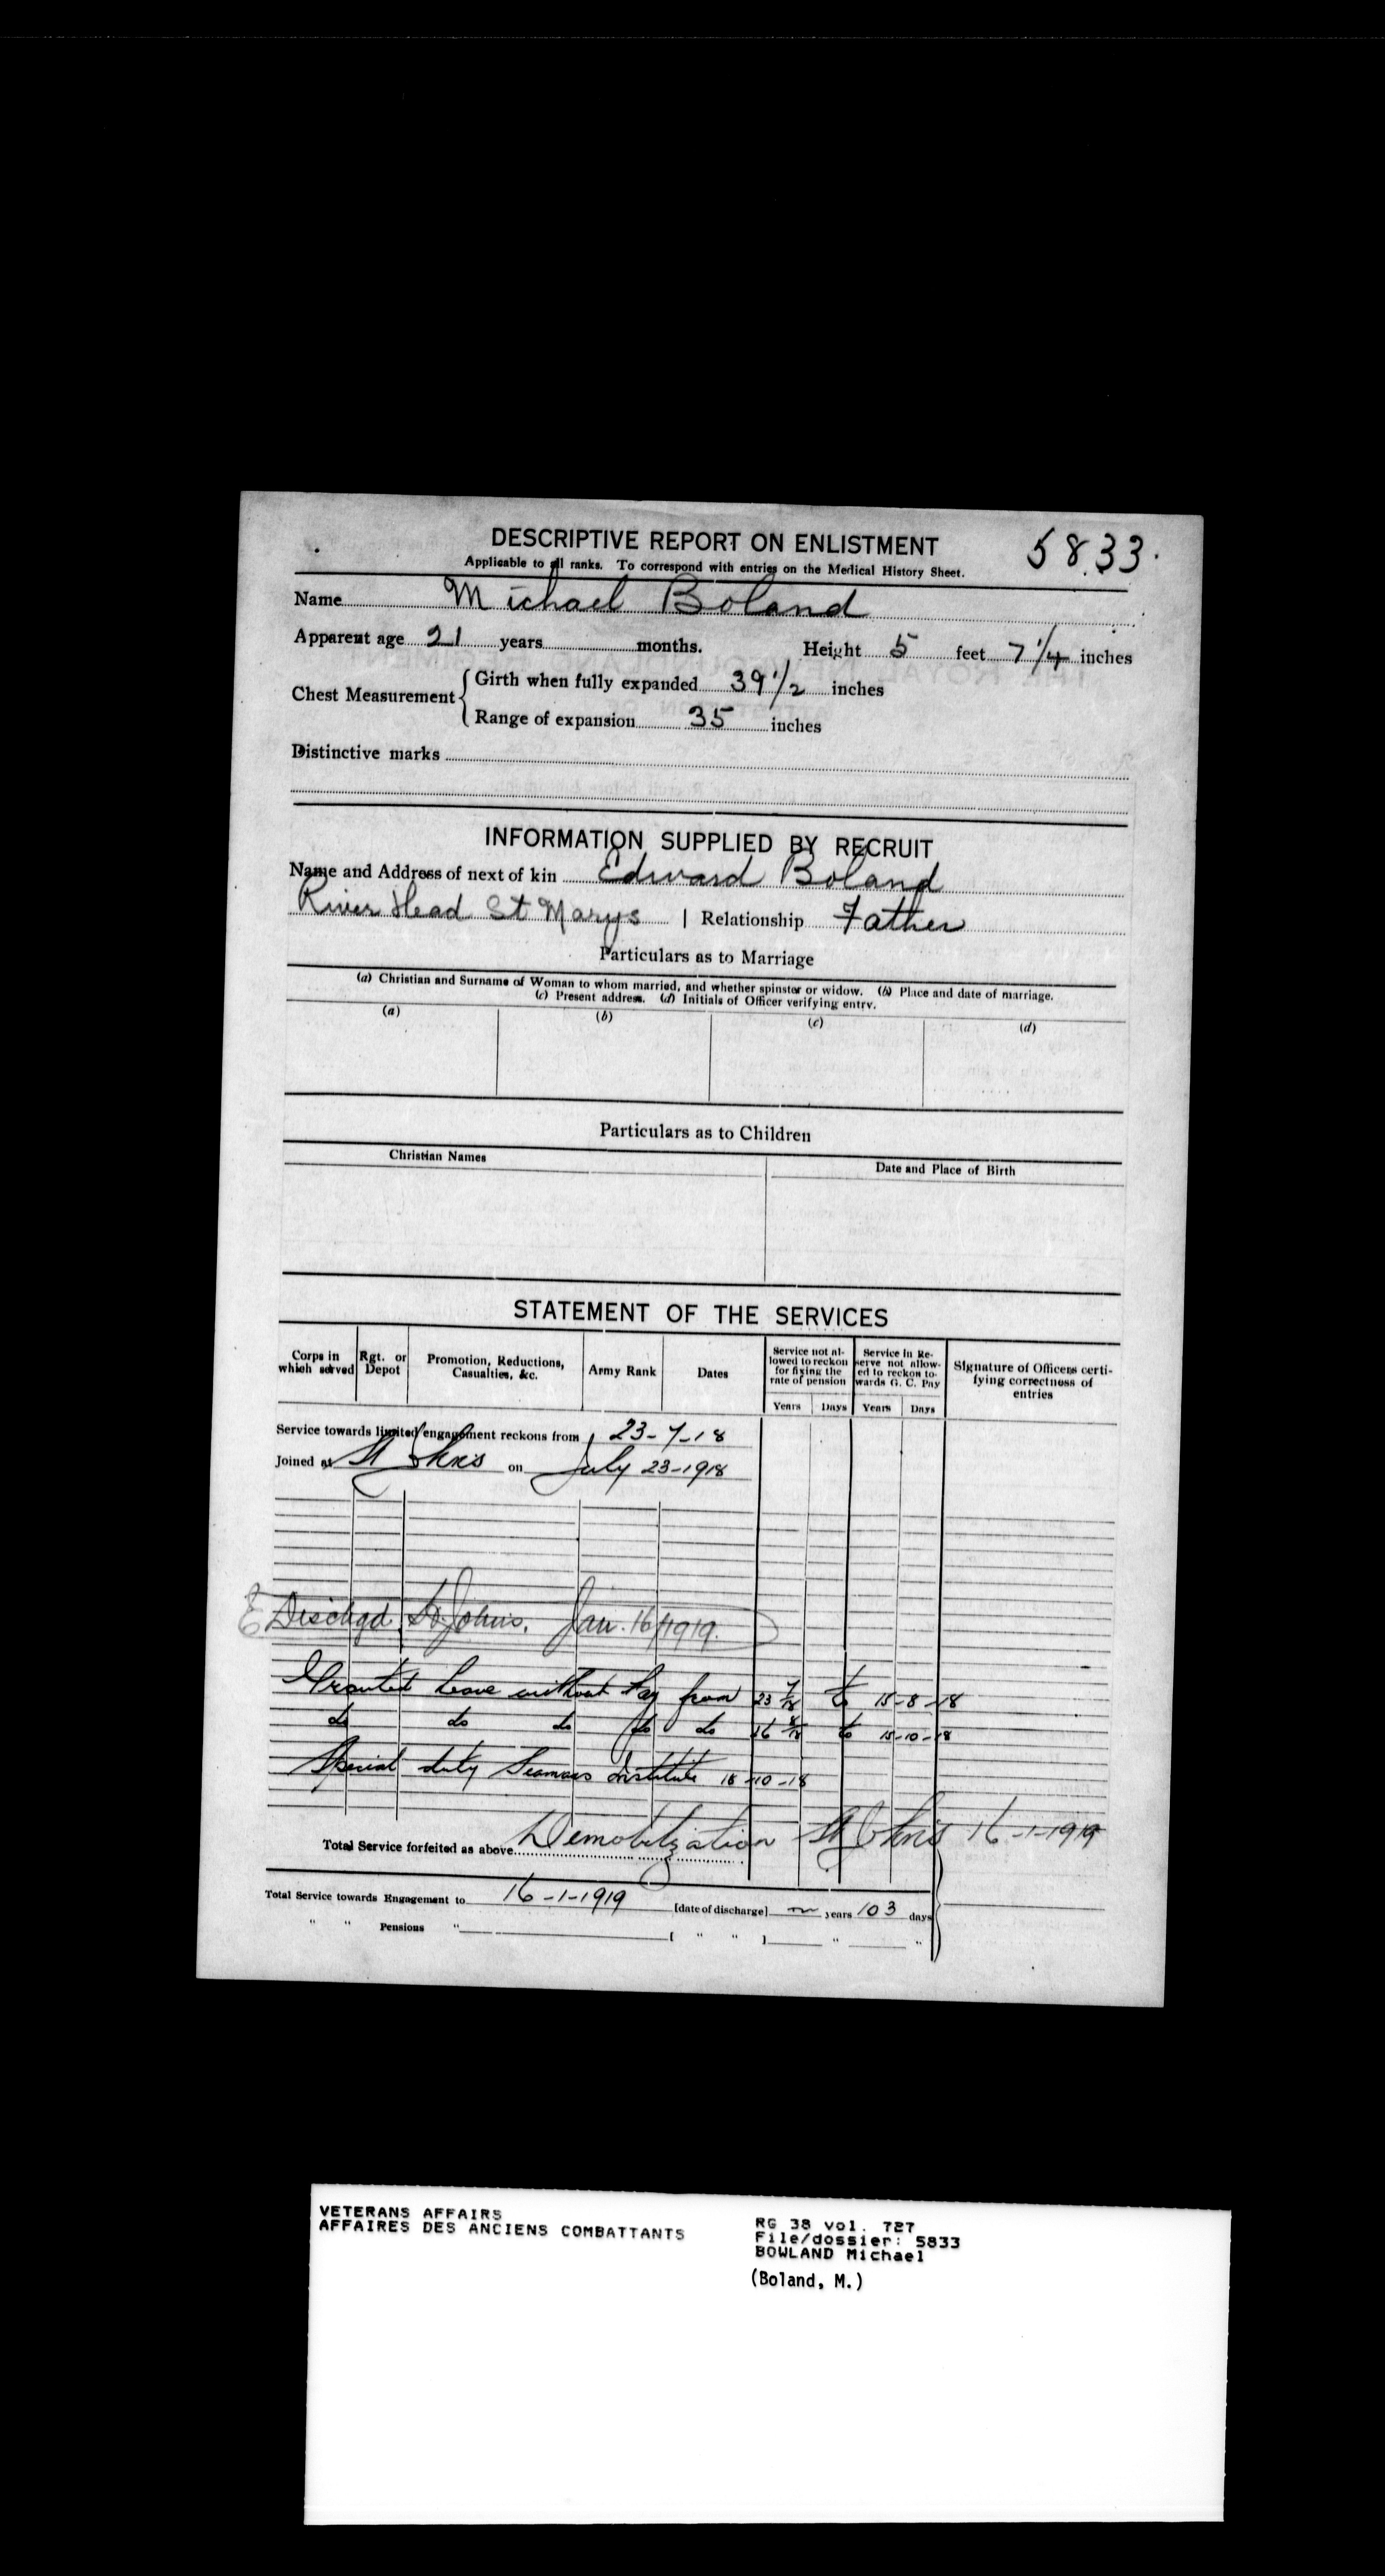 DESCRIPTIVE REPORT ON ENLISTMENT
5833.
Applicable to all ranks. To correspond with entries on the Medical History Sheet.
Name Michael Boland
Apparent age 21 years months. Height 5 feet 7 1/4 inches
Chest Measurement { Girth when fully expanded 39 1/2 inches
Range of expansion 35 inches
Distinctive marks
INFORMATION SUPPLIED BY RECRUIT
Name and Address of next of kin Edward Boland
River Head St Marys | Relationship Father
Particulars as to Marriage
(a) Christian and Surname of Woman to whom married, and whether spinster or widow. (b) Place and date of marriage.
(c) Present address. (d) Initials of Officer verifying entry.
(a) (b) (c) (d)
Particulars as to Children
Christian Names Date and Place of Birth
STATEMENT OF THE SERVICES
Corps in which served Rgt. or Depot Promotion, Reductions, Casualties, &c. Army Rank Dates Service not allowed to reckon for fixing the rate of pension Service in Reserve not allowed to reckon towards G. C. Pay Signature of Officers certifying correctness of entries
Years Days Years Days
Service towards limited engagement reckons from 23-7-18
Joined at St Johns on July 23-1918
Dischgd. St Johns. Jan. 16/1919.
Granted Leave without Pay from 23 7/18 to 15-8-18
do do do do do 16 8/18 to 15-10-18
Special duty Seamans Institute 18-10-18
Total Service forfeited as above Demobilization St Johns 16-1-1919
Total Service towards Engagement to 16-1-1919 [date of discharge] — years 103 days
" " Pensions " [ " " ] " "
VETERANS AFFAIRS
AFFAIRES DES ANCIENS COMBATTANTS
RG 38 vol. 727
File/dossier: 5833
BOWLAND Michael
(Boland, M.)